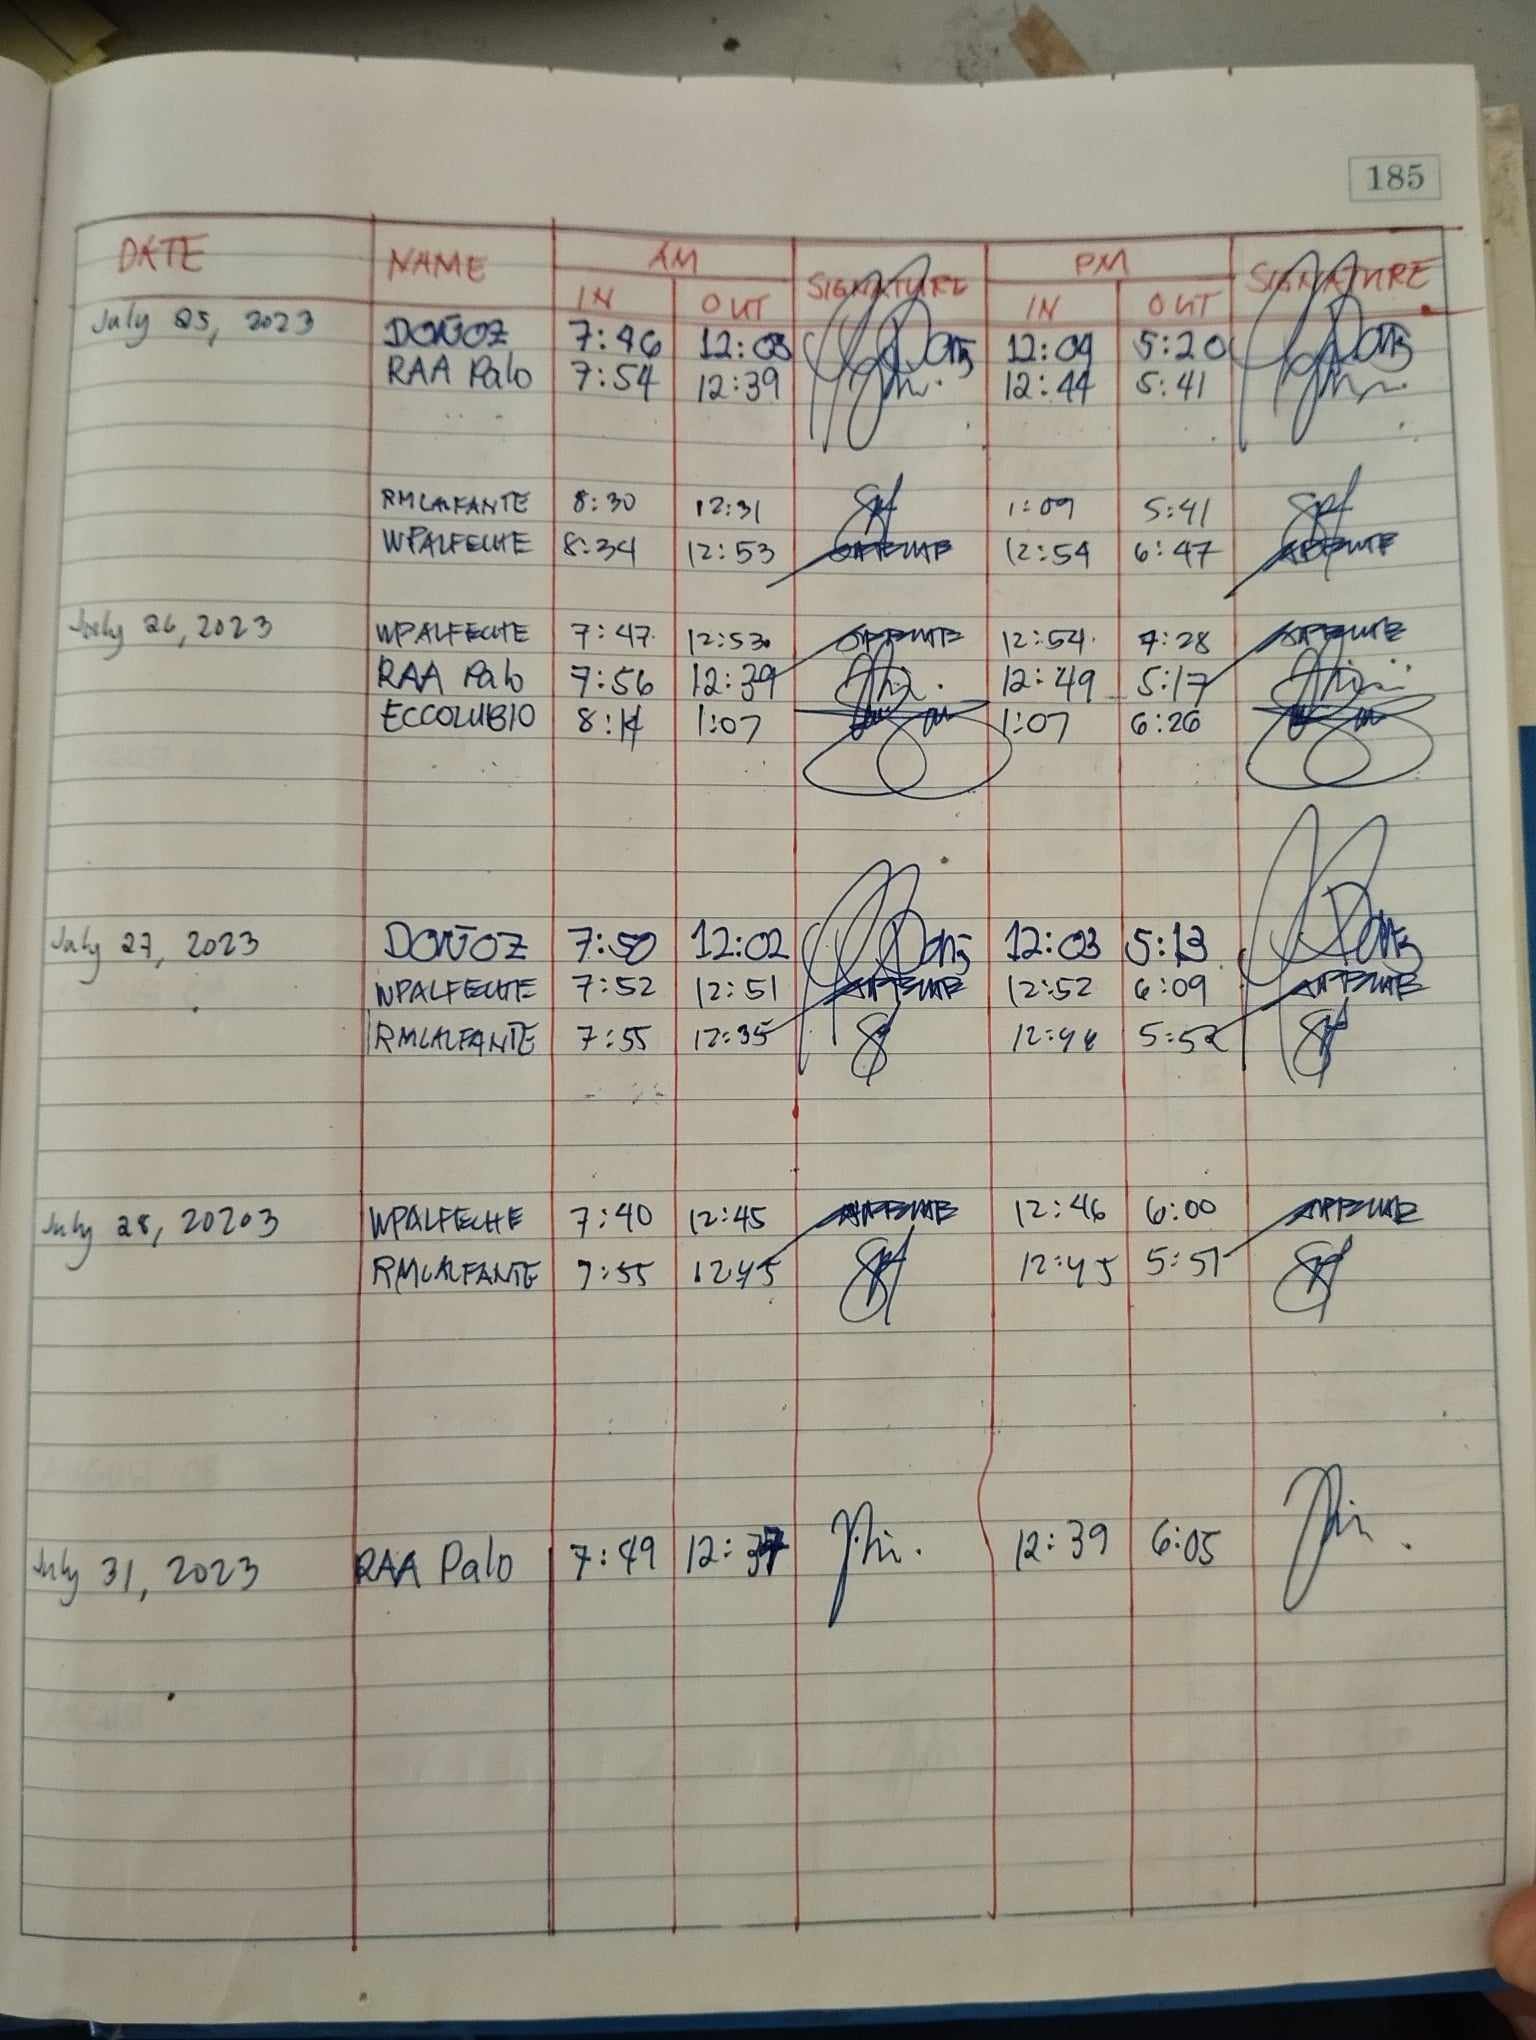 185
DATE NAME AM SIGNATURE PM SIGNATURE
IN OUT IN OUT
July 25, 2023 DOÑOZ 7:46 12:03 12:04 5:20
RAA Palo 7:54 12:39 12:44 5:41
RMCALFANTE 8:30 12:31 1:09 5:41
WPALFECHE 8:34 12:53 12:54 6:47
July 26, 2023 WPALFECHE 7:47 12:53 12:54 7:28
RAA Palo 7:56 12:39 12:49 5:17
ECCOLUBIO 8:14 1:07 1:07 6:26
July 27, 2023 DOÑOZ 7:50 12:02 12:03 5:13
WPALFECHE 7:52 12:51 12:52 6:09
RMCALFANTE 7:55 12:35 12:46 5:52
July 28, 20203 WPALFECHE 7:40 12:45 12:46 6:00
RMCALFANTE 7:55 12:45 12:45 5:51
July 31, 2023 RAA Palo 7:49 12:37 12:39 6:05